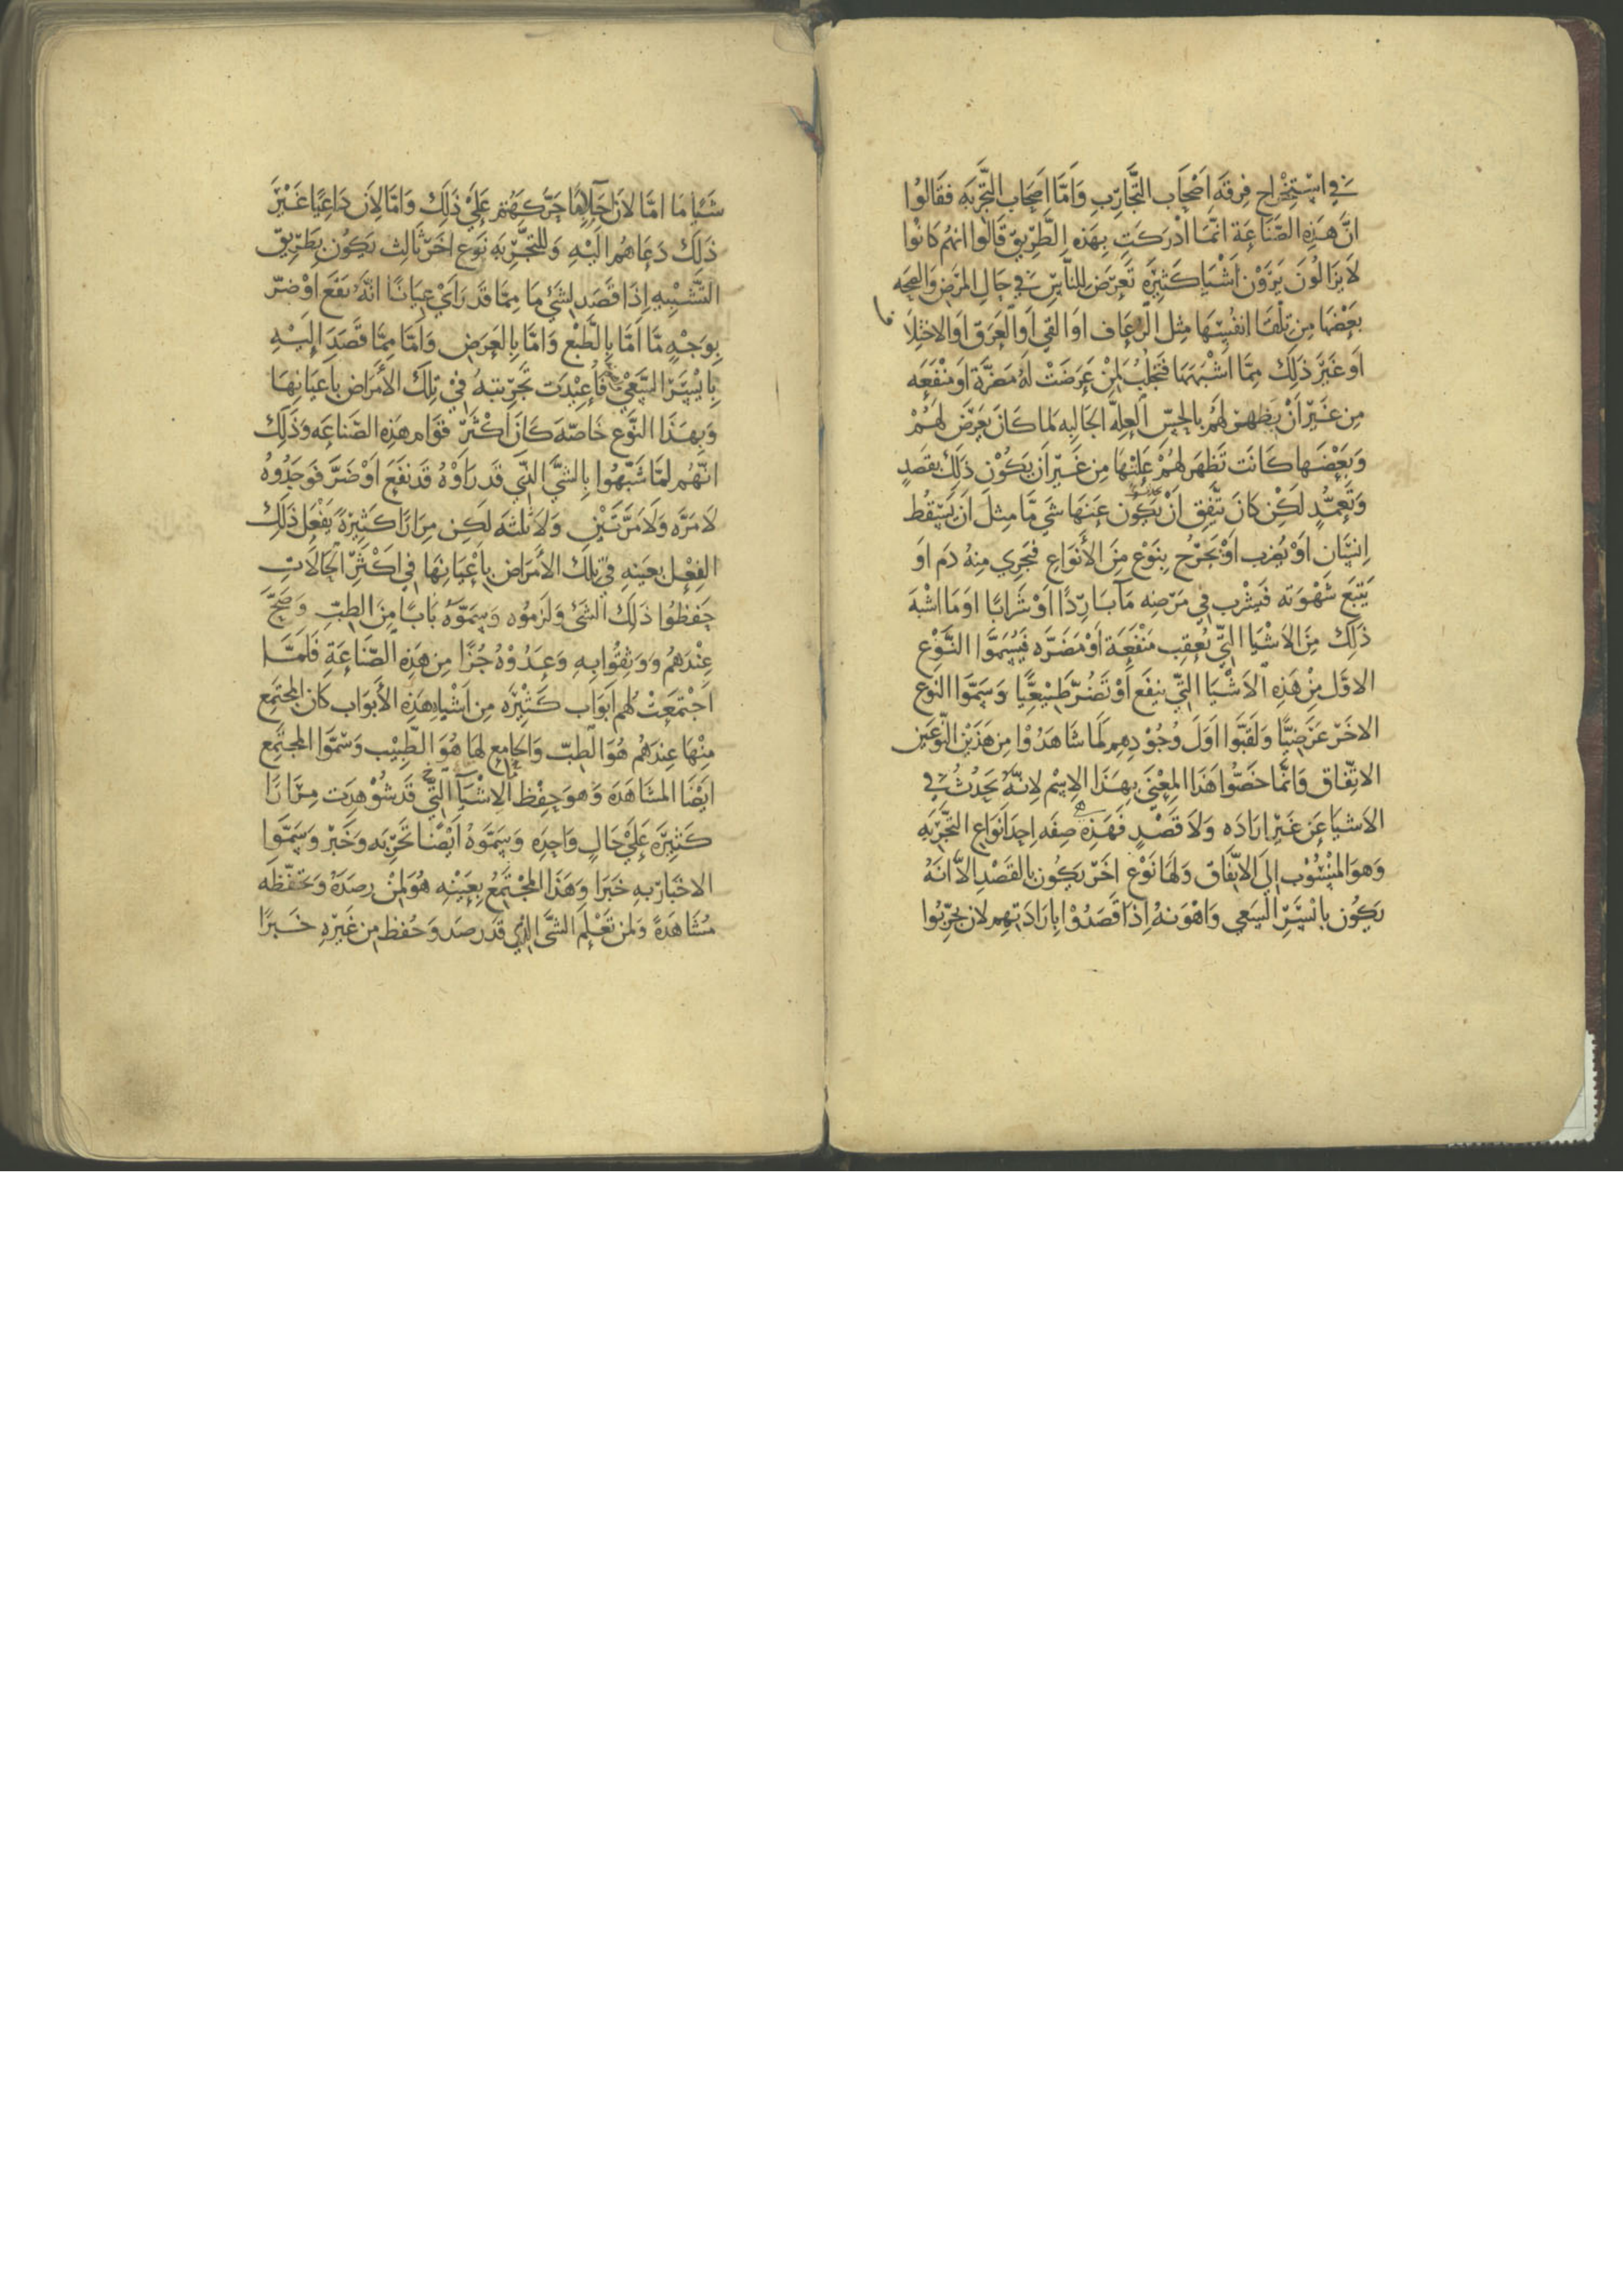 في استخراج فرقه اصحاب التجارب وامّا اصحاب التجربه فقالوا
انّ هذه الصّناعة انّما ادركت بهذه الطّريق قالوا انهم كانوا
لا يزالون يرون اشيا كثيرة تعرض للناس في حال المرض والصحه
بعضها من تلقا انفسها مثل الرعاف او القي او العرق او الاختلا
ف
او غير ذلك ممّا اشبهها فتجلب لمن عرضت له مضرّة او منفعه
من غير أن يظهر لهم بالحسّ العلّه الجالبه لما كان يعرض لهم
وبعضها كانت تظهر لهم علّتها من غير ان يكون ذلك بقصد
وتعمّد لكن كان تتّفق ان يكون عنها شي مّا مثل ان يسقط
انسان او يضرب او يخرج بنوع من الأنواع فيجري منه دم او
يتبع شهوته فيشرب في مرضه مآ باردًا او شرابًا او ما اشبه
ذلك من الاشيا التي تعقب منفعة او مضرّه فيسمّوا النّوع
الاوّل من هذه الاشيا التي ينفع او تضرّ طبيعيًّا وسمّوا النوع
الاخر عرضيًّا ولقبّوا اول وجودهم لما شاهدوا من هذين النّوعين
الاتّفاق وانّما خصّوا هذا المعنى بهذا الاسم لانّه يحدث في
الاشيا عن غير اراده ولا قصد فهذه صفه احدا نواع التجربه
وهو المنسوب الى الاتّفاق ولها نوع اخر يكون بالقصد الاّ انه
يكون بايسر السعي واهونه اذا قصدوا بارادتهم لان يجرّبوا
شيا ما امّا لان احلامًا حرّكتهم على ذلك وامّا لان داعيًا غير
ذلك دعاهم اليه وللتجربه نوع اخر ثالث يكون بطريق
التّشبيه اذا قصد لشئ ما ممّا قد راي عيانًا انّه نفع او ضرّ
بوجه مّا امّا بالطّبع وامّا بالعرض وامّا ممّا قصد اليه
بايسر السّعي فأعيدت تجربته في تلك الأمراض باعيانها
وبهذا النّوع خاصّة كان اكثر قوام هذه الصّناعه وذلك
انّهم لمّا شبّهوا بالشئ الذي قد راوه قد نفع او ضرّ فوجدوه
لا مرّه ولا مرّتين ولا ثلثه لكن مرارًا كثيرة يفعل ذلك
الفعل بعينه في تلك الأمراض باعيانها في اكثر الحالات
حفظوا ذلك الشئ ولزموه وسمّوه بابًا من الطبّ وصحّ
عندهم ووثقوا به وعدّوه جزًا من هذه الصّناعة فلمّا
اجتمعت لهم ابواب كثيره من اشباه هذه الأبواب كان المجتمع
منها عندهم هو الطبّ والجامع لها هو الطبيب وسمّوا المجتمع
ايضًا المشاهدة وهو حفظ الاشيآ التي قد شوهدت مرارًا
كثيرة على حال واحده وسمّوه أيضًا تجربه وخبر وسمّوا
الاخبار به خبرا وهذا المجتمع بعينه هو لمن رصده وتحفّظه
مشاهدة ولمن تعلم الشئ الذي قد رصد وحفظ من غيره خبرًا